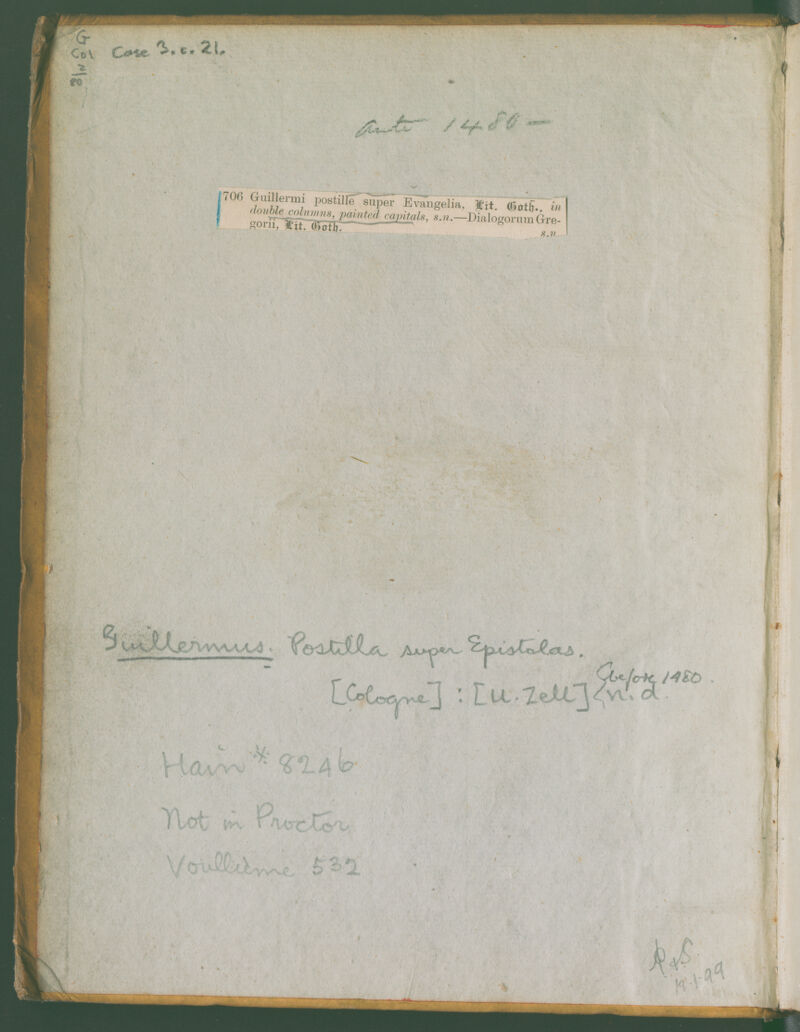 G
Col
2
80
Case 3. c. 21.
Ante 1480 —
706 Guillermi postille super Evangelia, Lit. Goth., in
double columns, painted capitals, s.n.—Dialogorum Gre-
gorii, Lit. Goth. s.n.
Guillermus. Postilla super Epistolas.
before 1480.
[Cologne] : [U. Zell] n. d.
Hain * 8246
Not in Proctor
Voullième 532
R & S.